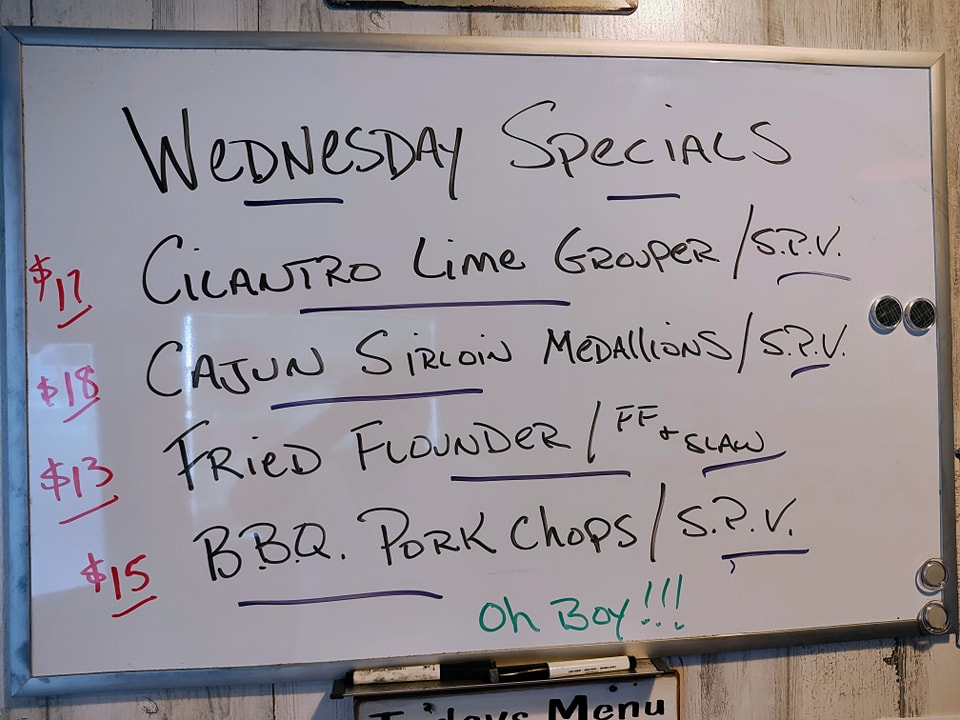 Wednesday Specials
$17 Cilantro Lime Grouper / S.P.V.
$18 Cajun Sirloin Medallions / S.P.V.
$13 Fried Flounder / FF + Slaw
$15 B.B.Q. Pork Chops / S.P.V.
Oh Boy!!!
Todays Menu